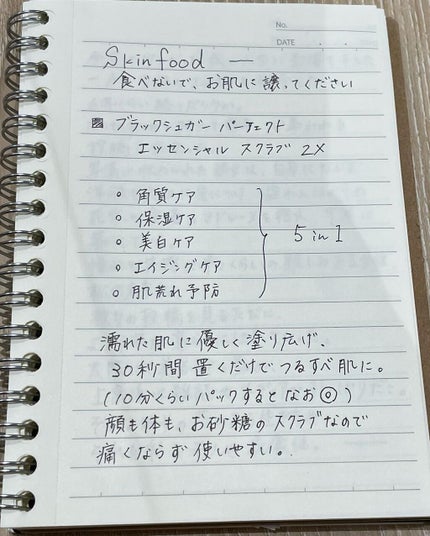 No.
DATE . .
Skinfood ―
食べないで、お肌に譲ってください
▨ ブラックシュガー パーフェクト
エッセンシャル スクラブ 2X
○ 角質ケア
○ 保湿ケア
○ 美白ケア
○ エイジングケア
○ 肌荒れ予防
5 in 1
濡れた肌に優しく塗り広げ、
30秒間 置くだけで つるすべ 肌に。
(10分くらい パックするとなお◎)
顔も体も、お砂糖の スクラブなので
痛くならず 使いやすい。